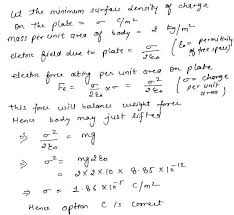 Let the minimum surface density of charge
on the plate = σ C/m²
mass per unit area of body = 2 kg/m²
electric field due to plate = σ/2ε₀ (ε₀ = permittivity of free space)
electric force acting per unit area on plate
Fe = σ/2ε₀ × σ (σ = charge per unit area)
this force will balance weight force.
Hence body may just lifted
⇒ σ²/2ε₀ = mg
⇒ σ² = mg2ε₀
= 2×2×10 × 8.85 × 10⁻¹²
⇒ σ = 1.88 × 10⁻⁵ C/m²
Hence option C is correct